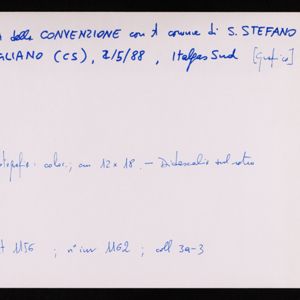 della CONVENZIONE con il comune di S. STEFANO
GLIANO (CS), 2/5/88, Italgas Sud [Grafico]
tografia: color.; cm 12 x 18. - Didascalia sul retro
1156 ; n° inv 1162 ; coll 3a-3